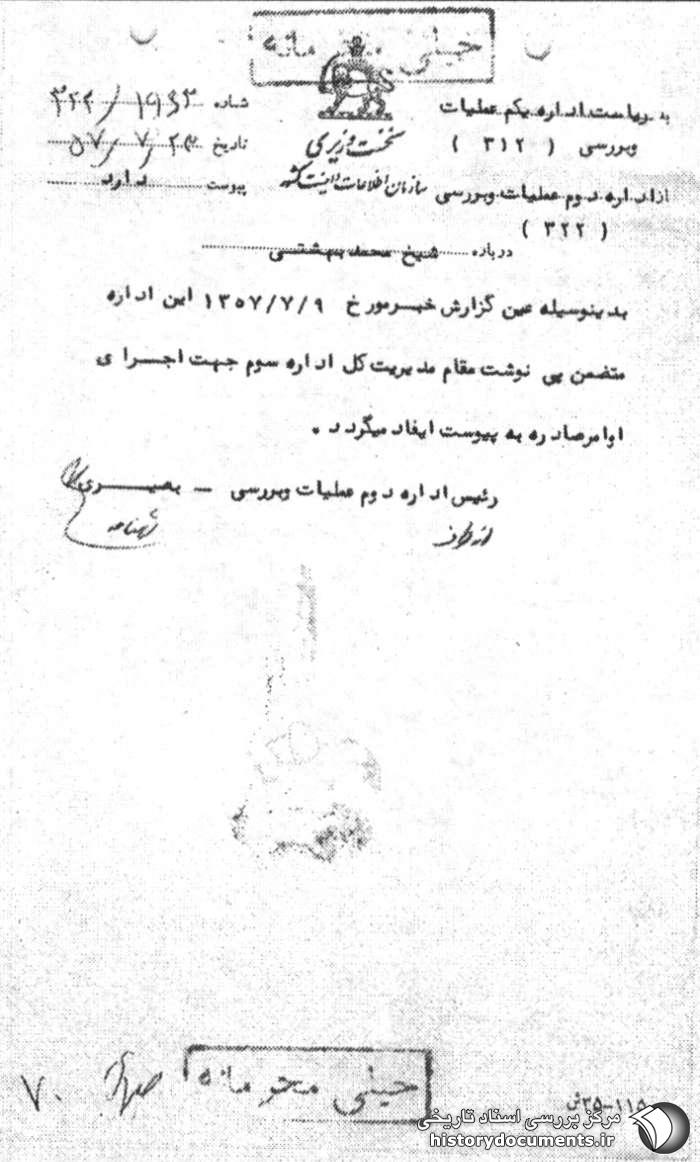 خیلی محرمانه
به ریاست اداره یکم عملیات
وبررسی ( ۳۱۲ )
از اداره دوم عملیات وبررسی
( ۳۲۲ )
نخست وزیری
سازمان اطلاعات و امنیت کشور
شماره ۳۲۲/
تاریخ ۵۷/۷/
پیوست دارد
درباره شیخ محمد بهشتی
بدینوسیله عین گزارش خبر مورخ ۱۳۵۷/۷/۹ این اداره
متضمن پی نوشت مقام مدیریت کل اداره سوم جهت اجرای
اوامر صادره به پیوست ایفاد میگردد .
رئیس اداره دوم عملیات وبررسی - بصیری
از طرف
خیلی محرمانه
۷۰
۳۵-۱۱۵
مرکز بررسی اسناد تاریخی
historydocuments.ir